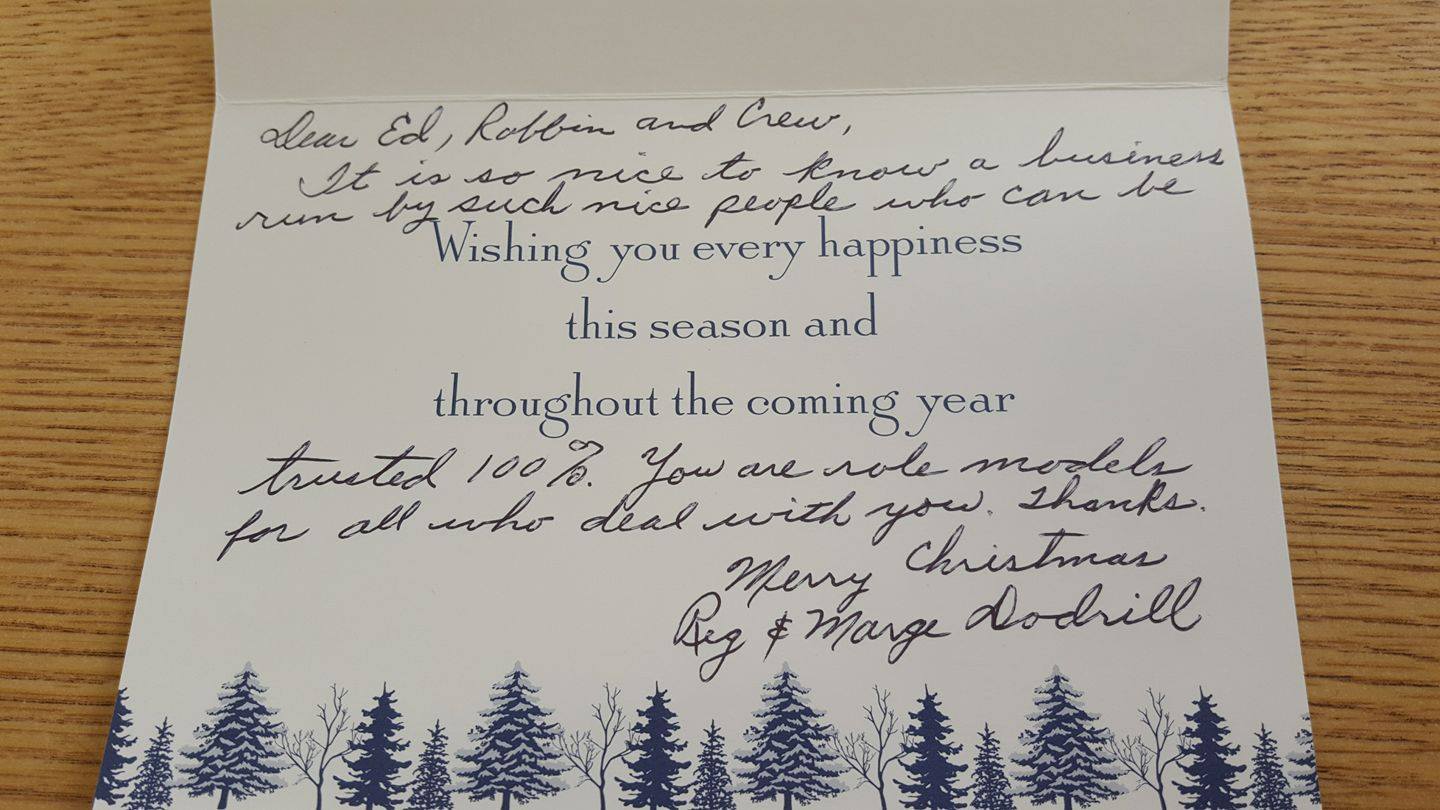 Dear Ed, Robbin and Crew,
It is so nice to know a business
run by such nice people who can be
Wishing you every happiness
this season and
throughout the coming year
trusted 100%. You are role models
for all who deal with you. Thanks.
Merry Christmas
Reg & Marge Dodrill